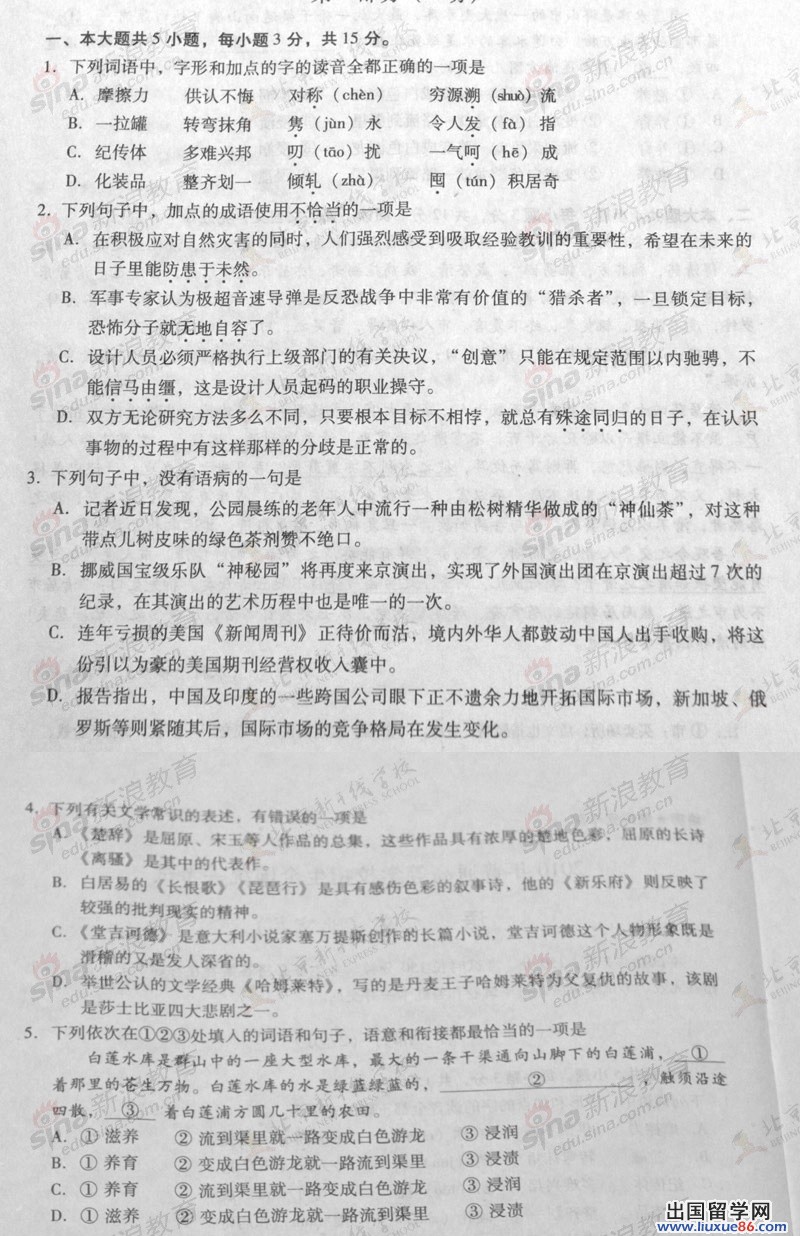 一、本大题共5小题，每小题3分，共15分。
1. 下列词语中，字形和加点的字的读音全都正确的一项是
A. 摩擦力 供认不悔 对称（chèn） 穷源溯（shuò）流
B. 一拉罐 转弯抹角 隽（jùn）永 令人发（fà）指
C. 纪传体 多难兴邦 叨（tāo）扰 一气呵（hē）成
D. 化装品 整齐划一 倾轧（zhà） 囤（tún）积居奇
2. 下列句子中，加点的成语使用不恰当的一项是
A. 在积极应对自然灾害的同时，人们强烈感受到吸取经验教训的重要性，希望在未来的
日子里能防患于未然。
B. 军事专家认为极超音速导弹是反恐战争中非常有价值的“猎杀者”，一旦锁定目标，
恐怖分子就无地自容了。
C. 设计人员必须严格执行上级部门的有关决议，“创意”只能在规定范围以内驰骋，不
能信马由缰，这是设计人员起码的职业操守。
D. 双方无论研究方法多么不同，只要根本目标不相悖，就总有殊途同归的日子，在认识
事物的过程中有这样那样的分歧是正常的。
3. 下列句子中，没有语病的一句是
A. 记者近日发现，公园晨练的老年人中流行一种由松树精华做成的“神仙茶”，对这种
带点儿树皮味的绿色茶剂赞不绝口。
B. 挪威国宝级乐队“神秘园”将再度来京演出，实现了外国演出团在京演出超过7次的
纪录，在其演出的艺术历程中也是唯一的一次。
C. 连年亏损的美国《新闻周刊》正待价而沽，境内外华人都鼓动中国人出手收购，将这
份引以为豪的美国期刊经营权收入囊中。
D. 报告指出，中国及印度的一些跨国公司眼下正不遗余力地开拓国际市场，新加坡、俄
罗斯等则紧随其后，国际市场的竞争格局在发生变化。
4. 下列有关文学常识的表述，有错误的一项是
A. 《楚辞》是屈原、宋玉等人作品的总集，这些作品具有浓厚的楚地色彩，屈原的长诗
《离骚》是其中的代表作。
B. 白居易的《长恨歌》《琵琶行》是具有感伤色彩的叙事诗，他的《新乐府》则反映了
较强的批判现实的精神。
C. 《堂吉诃德》是意大利小说家塞万提斯创作的长篇小说，堂吉诃德这个人物形象既是
滑稽的又是发人深省的。
D. 举世公认的文学经典《哈姆莱特》，写的是丹麦王子哈姆莱特为父复仇的故事，该剧
是莎士比亚四大悲剧之一。
5. 下列依次在①②③处填入的词语和句子，语意和衔接都最恰当的一项是
白莲水库是群山中的一座大型水库，最大的一条干渠通向山脚下的白莲浦，①
着那里的苍生万物。白莲水库的水是绿蓝绿蓝的，②，触须沿途
四散，③着白莲浦方圆几十里的农田。
A. ①滋养 ②流到渠里就一路变成白色游龙 ③浸润
B. ①养育 ②变成白色游龙就一路流到渠里 ③浸渍
C. ①养育 ②流到渠里就一路变成白色游龙 ③浸润
D. ①滋养 ②变成白色游龙就一路流到渠里 ③浸渍
新浪教育
edu.sina.com.cn
北京新干线学校
出国留学网
www.liuxue86.com